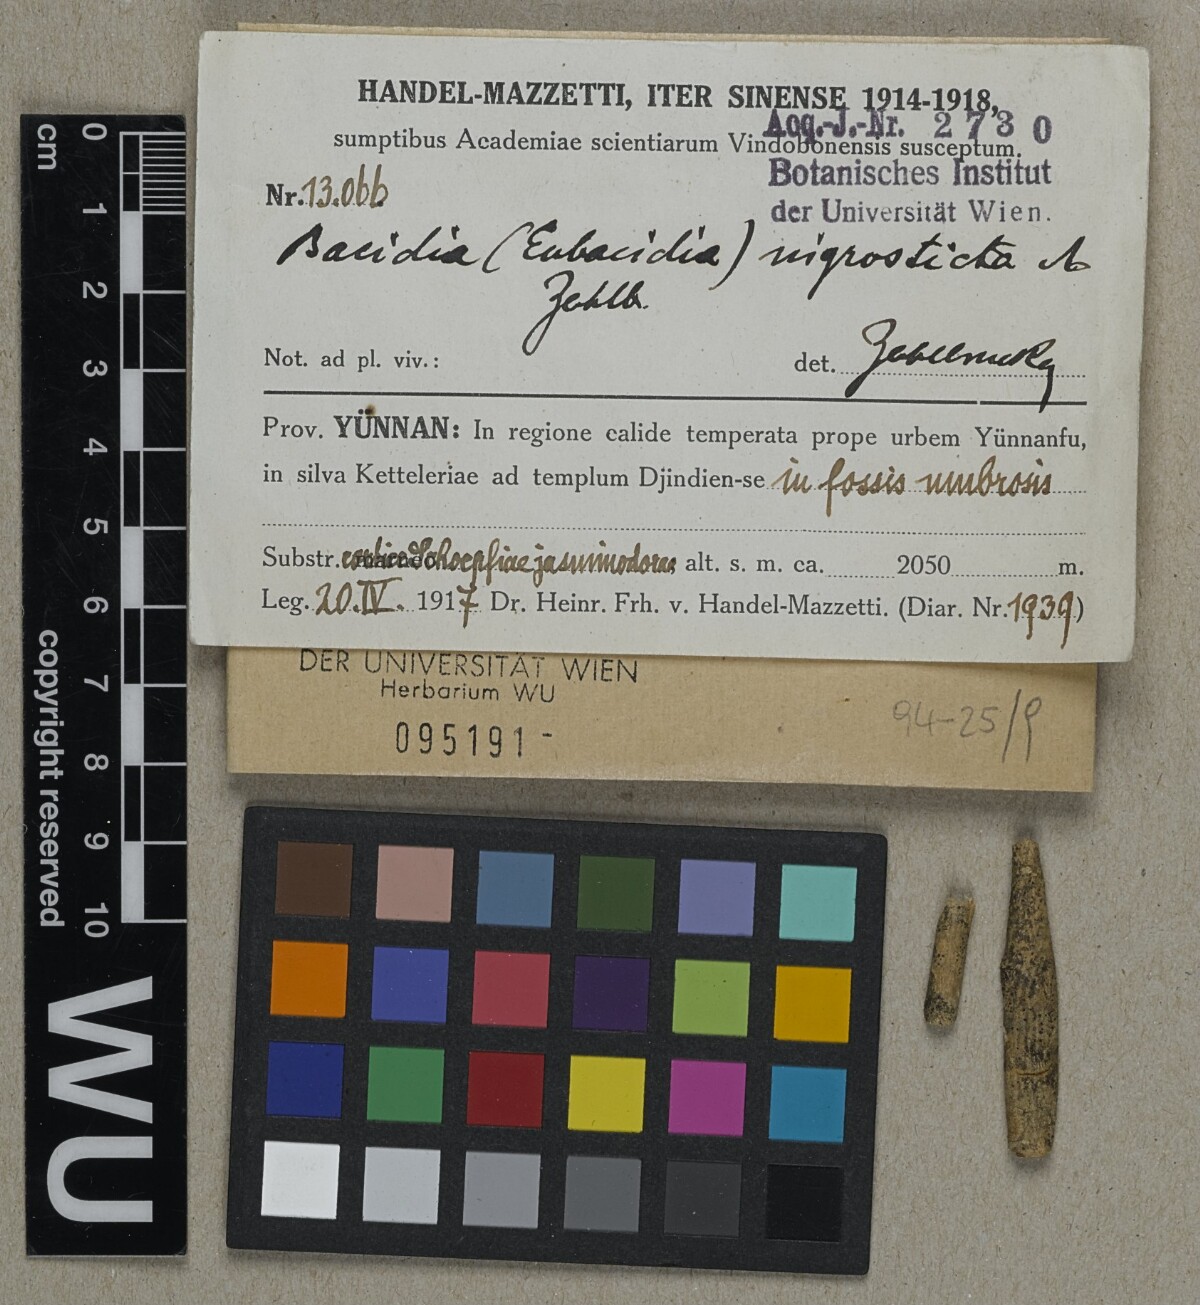 HANDEL-MAZZETTI, ITER SINENSE 1914-1918,
sumptibus Academiae scientiarum Vindobonensis susceptum.
Acq.-J.-Nr. 2730
Botanisches Institut
der Universität Wien.
Nr. 13.066
Bacidia (Eubacidia) nigrosticta A
Zahlb.
Not. ad pl. viv.:
det. Zahlbruckner
Prov. YÜNNAN: In regione calide temperata prope urbem Yünnanfu,
in silva Keteleriae ad templum Djindien-se in fossis umbrosis
Substr. cortice Schoepfiae jasminodorae alt. s. m. ca. 2050 m.
Leg. 20.IV. 1917 Dr. Heinr. Frh. v. Handel-Mazzetti. (Diar. Nr. 1939)
DER UNIVERSITÄT WIEN
Herbarium WU
095191 -
94-25/9
cm 0 1 2 3 4 5 6 7 8 9 10
copyright reserved
WU